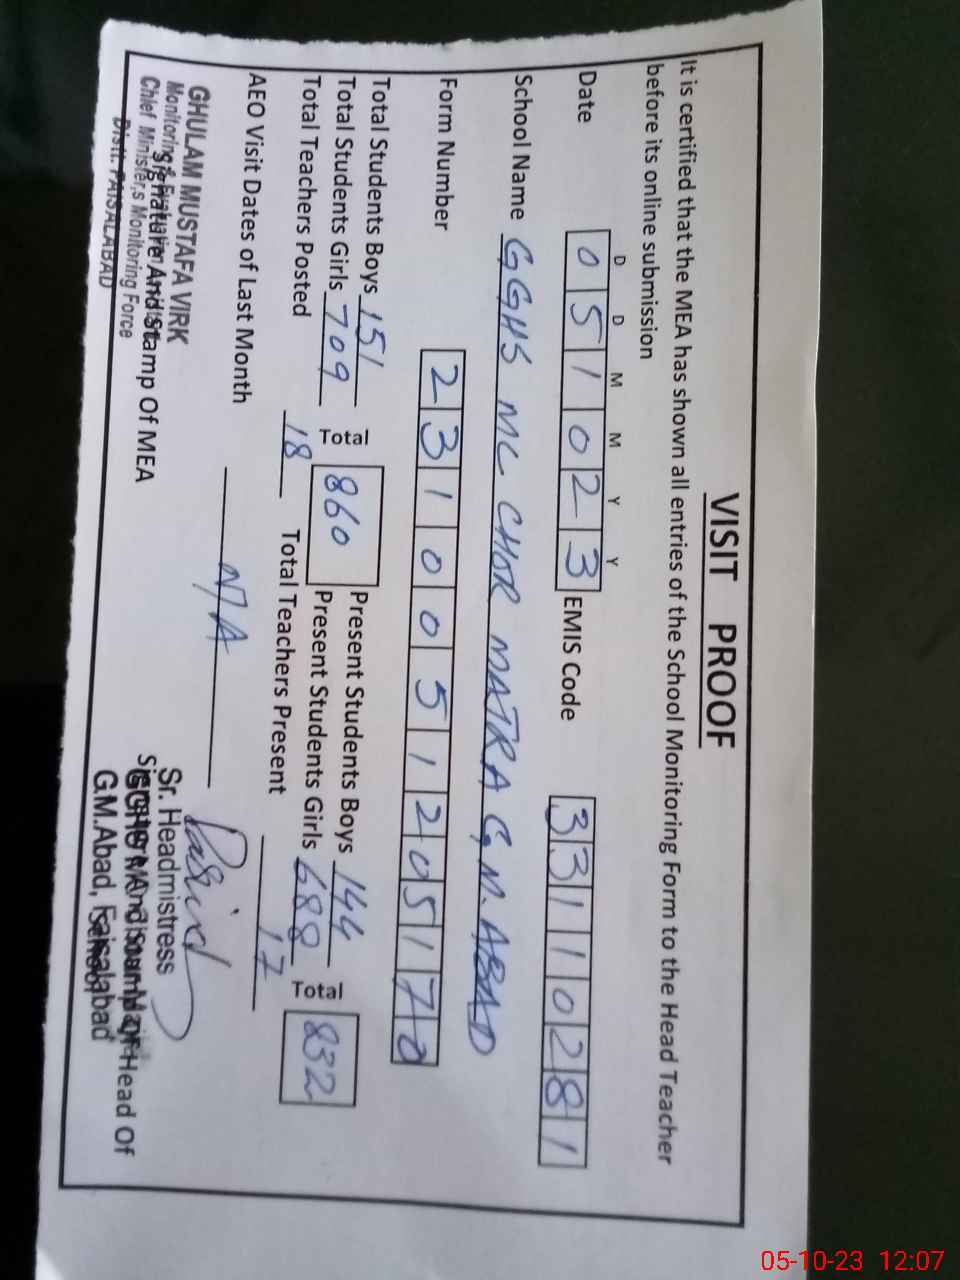 VISIT PROOF
It is certified that the MEA has shown all entries of the School Monitoring Form to the Head Teacher
before its online submission
D D M M Y Y
Date 0 5 1 0 2 3 EMIS Code 3 3 1 1 0 2 8 1
School Name GGHS MC CHOR MATRA G.M.ABAD
Form Number 2 3 1 0 0 5 1 2 0 5 1 7
Total Students Boys 151 Total 860 Present Students Boys 144 Total 832
Total Students Girls 709 Present Students Girls 688
Total Teachers Posted 18 Total Teachers Present 17
AEO Visit Dates of Last Month N/A
GHULAM MUSTAFA VIRK
Monitoring
Chief Minister,s Monitoring Force
Distt. FAISALABAD
Signature And Stamp Of MEA
Sr. Headmistress
G.M.Abad, Faisalabad
Head Of
05-10-23 12:07